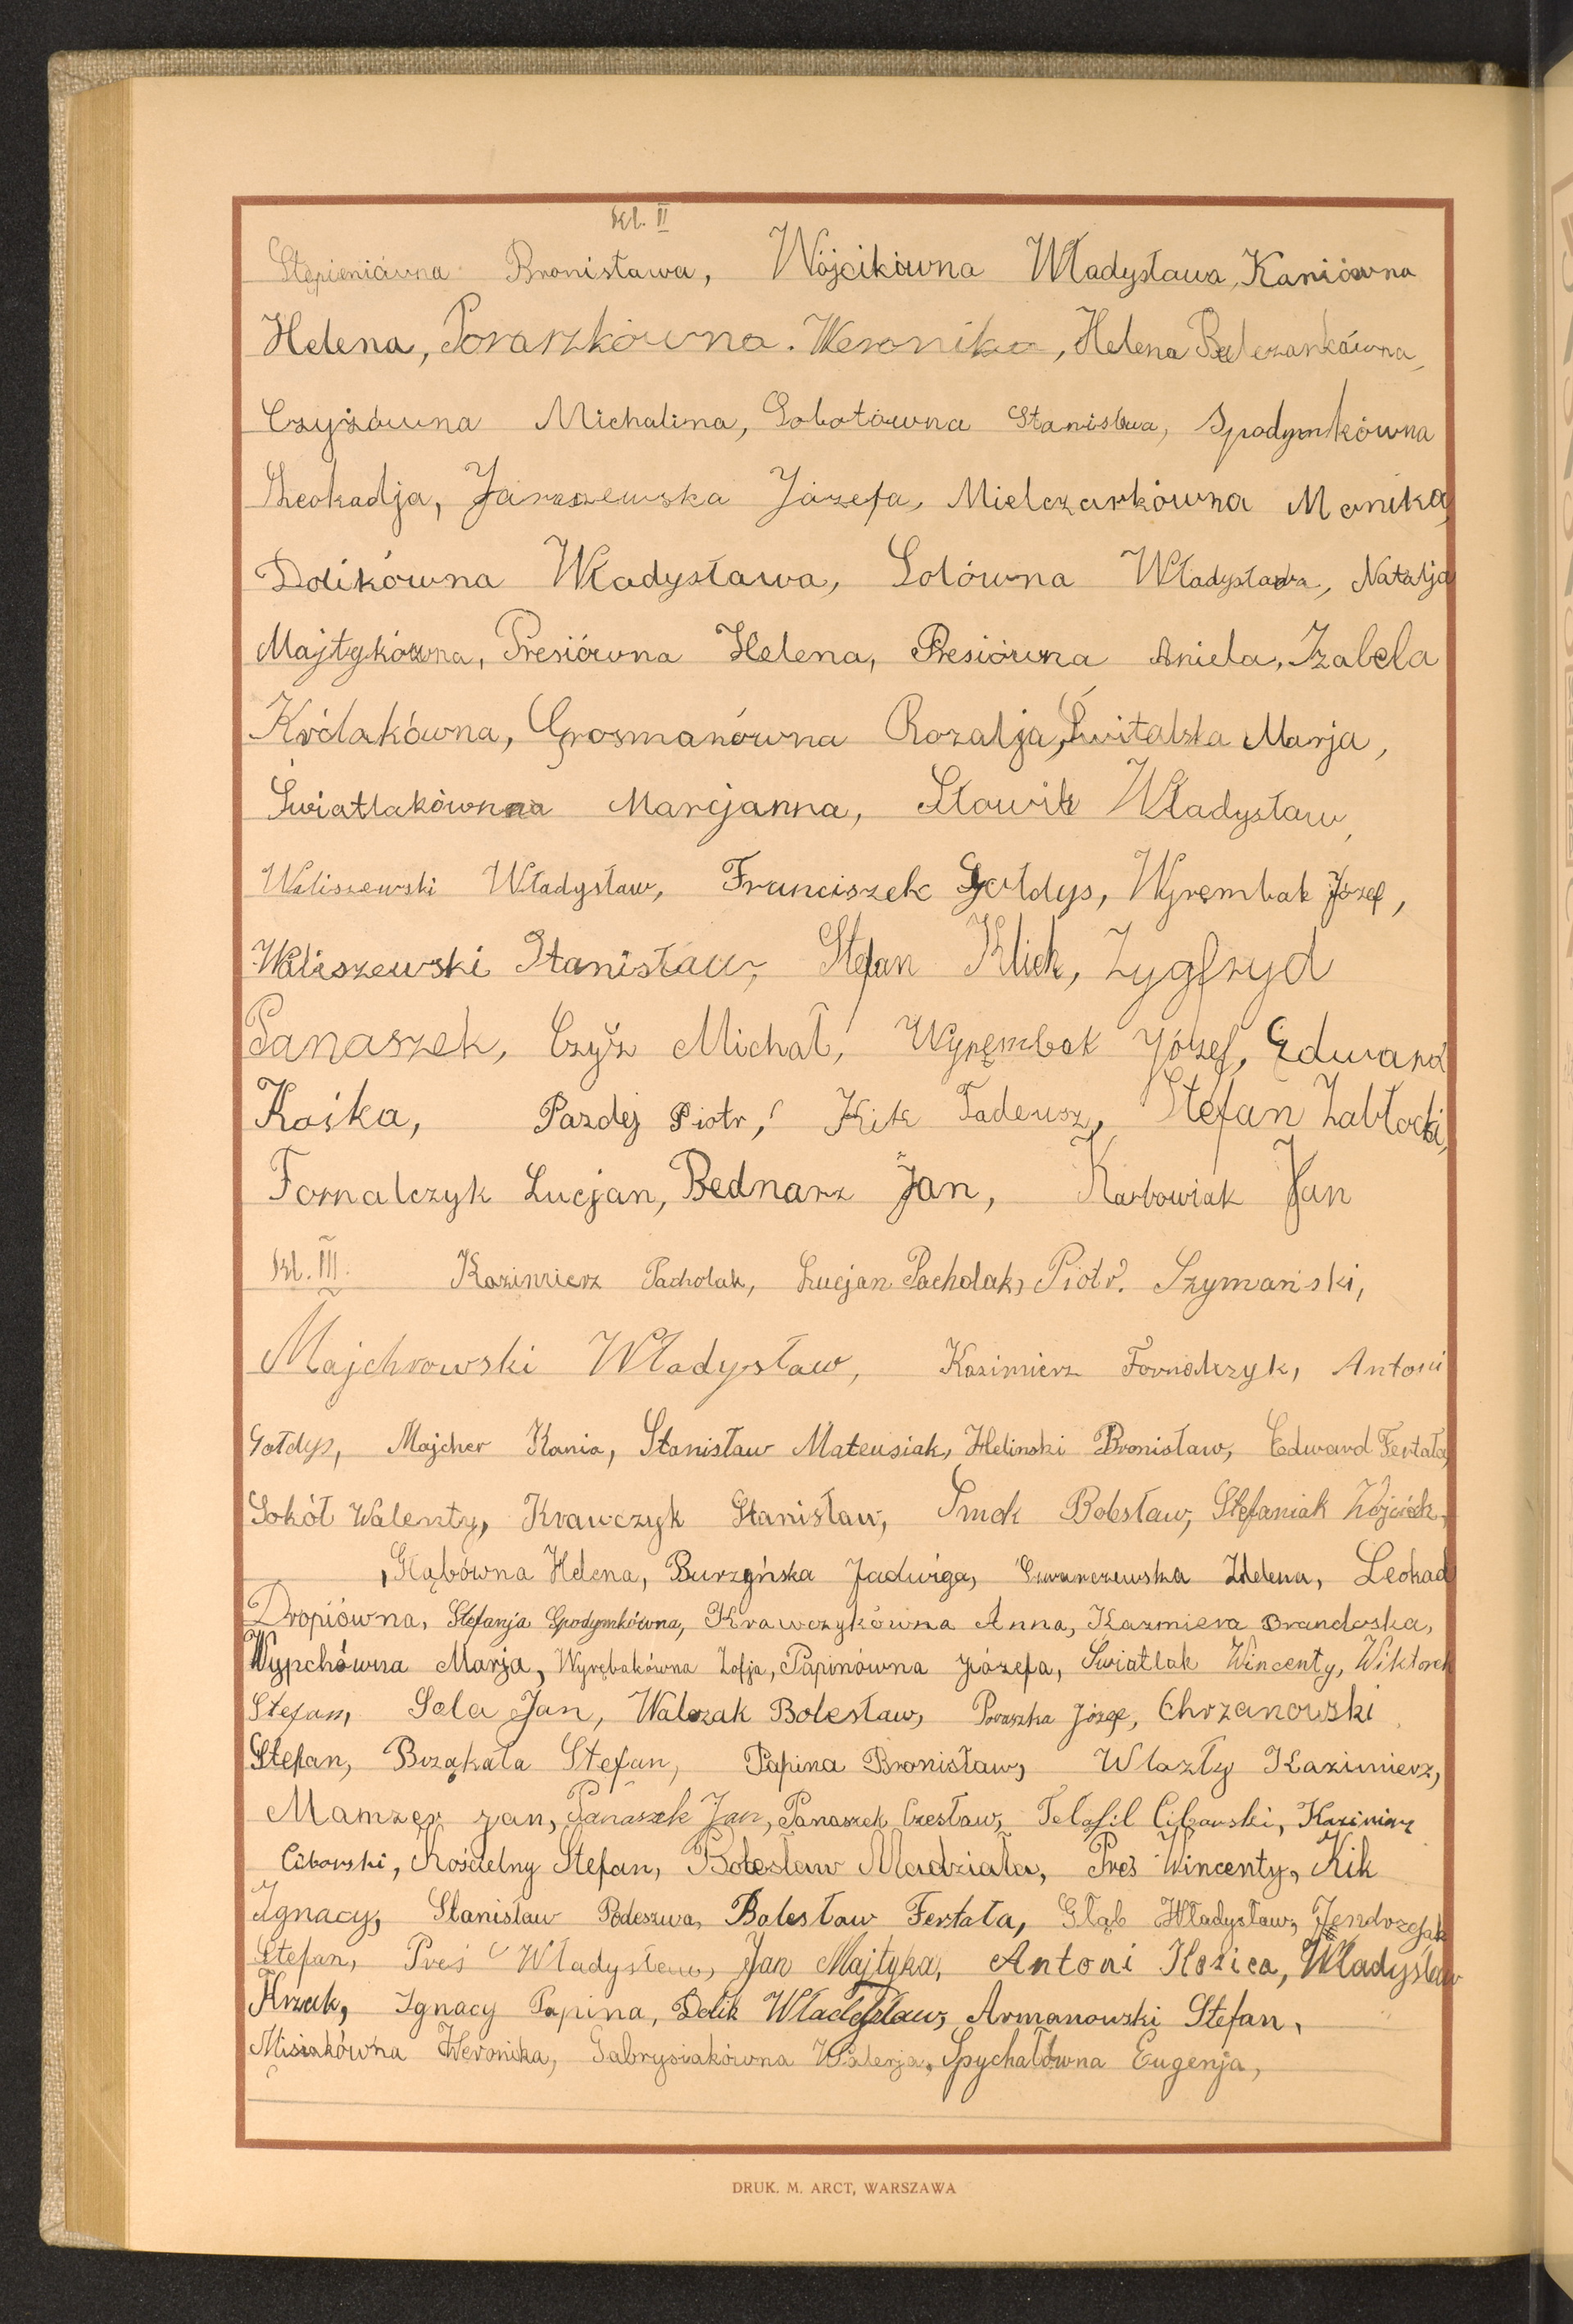 Kl. II
Stępieniówna Bronisława, Wójcikówna Władysława, Kaniówna
Helena, Poraszkówna. Weronika, Helena Balczarkówna,
Czyżówna Michalina, Sobotówna Stanisława, Spodymkówna
Leokadja, Jaraszewska Józefa, Mielczarkówna Monika,
Dolikówna Władysława, Solówna Władysława, Natalja
Majtykówna, Presiówna Helena, Presiówna Aniela, Izabela
Królakówna, Grosmanówna Rozalja, Świtalska Marja,
Światlakówna Marcjanna, Słowik Władysław,
Waliszewski Władysław, Franciszek Gołdys, Wyrembak Józef,
Waliszewski Stanisław, Stefan Klich, Zygfryd
Panaszek, Czyż Michał, Wyrembak Józef, Edward
Kośka, Pazdej Piotr, Kik Tadeusz, Stefan Zabłocki,
Fornalczyk Lucjan, Bednarz Jan, Karbowiak Jan
Kl. III. Kazimierz Pacholak, Lucjan Pacholak, Piotr. Szymański,
Majchrowski Władysław, Kazimierz Fornalczyk, Antoni
Gołdys, Majcher Kania, Stanisław Mateusiak, Helinski Bronisław, Edward Fertała,
Sokół Walenty, Krawczyk Stanisław, Smok Bolesław, Stefaniak Wojciech,
Głąbówna Helena, Burzyńska Jadwiga, Helena, Leokad
Dropiówna, Stefanja Spodymkówna, Krawczykówna Anna, Kazmiera Brandoska,
Wypchówna Marja, Wyrębakówna Zofja, Papinówna Józefa, Świątlak Wincenty, Wiktorek
Stefan, Sola Jan, Walczak Bolesław, Poraszka Józef, Chrzanowski
Stefan, Brząkała Stefan, Papina Bronisław, Wlazły Kazimierz,
Mamzer Jan, Panaszek Jan, Panaszek Czesław, Telofil Ciborski, Kazimierz
Ciborski, Kościelny Stefan, Bolesław Madziała, Preś Wincenty, Kik
Ignacy, Stanisław Podeszwa, Bolesław Fertała, Głąb Władysław, Jendrzejak
Stefan, Preś Władysław, Jan Majtyka, Antoni Hozica, Władysław
Hrzak, Ignacy Papina, Dolik Władysław, Armanowski Stefan,
Misiakówna Weronika, Gabrysiakówna Walerja, Spychałówna Eugenja,
DRUK. M. ARCT, WARSZAWA